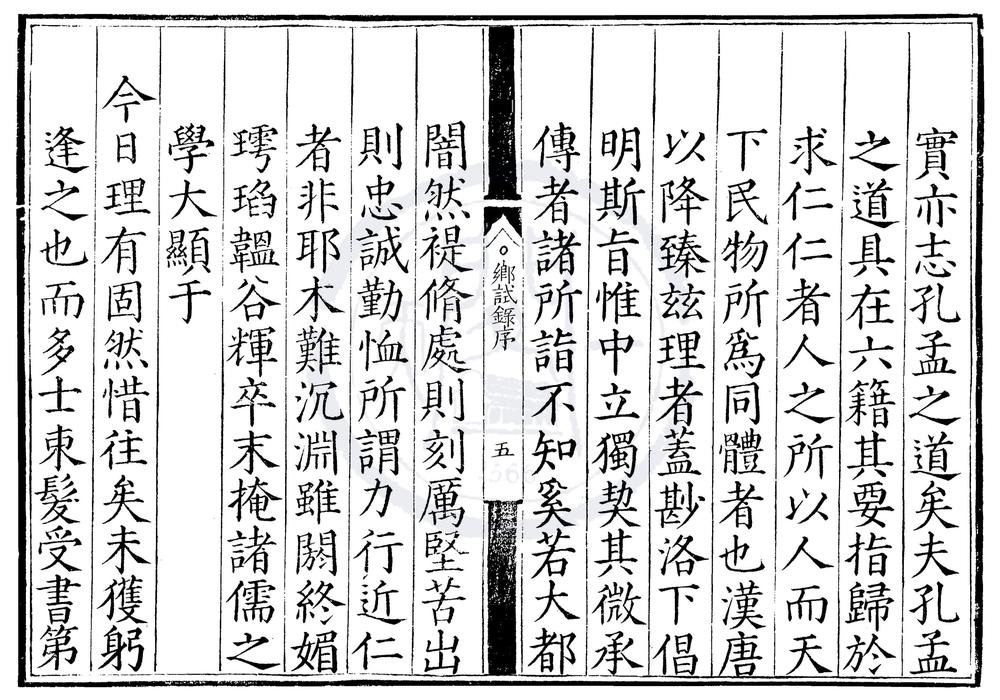 實亦志孔孟之道矣夫孔孟
之道具在六籍其要指歸於
求仁仁者人之所以人而天
下民物所爲同體者也漢唐
以降臻玆理者蓋尠洛下倡
明斯旨惟中立獨契其微承
傳者諸所詣不知奚若大都
鄉試錄序
五
闇然禔脩處則刻厲堅苦出
則忠誠勤恤所謂力行近仁
者非耶木難沉淵雖閟終媚
㻬琈韞谷輝卒末掩諸儒之
學大顯于
今日理有固然惜往矣未獲躬
逢之也而多士束髮受書第